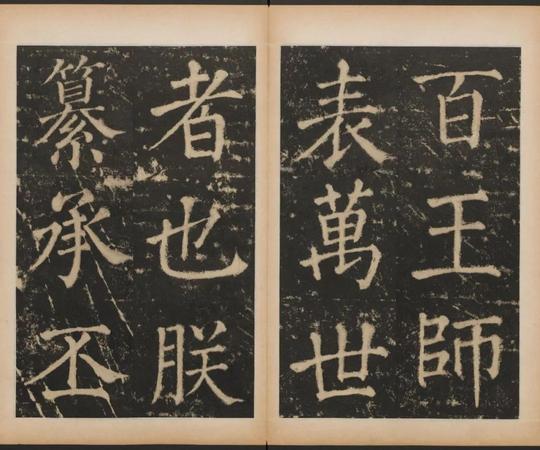 百王師
表萬世
者也朕
纂承丕